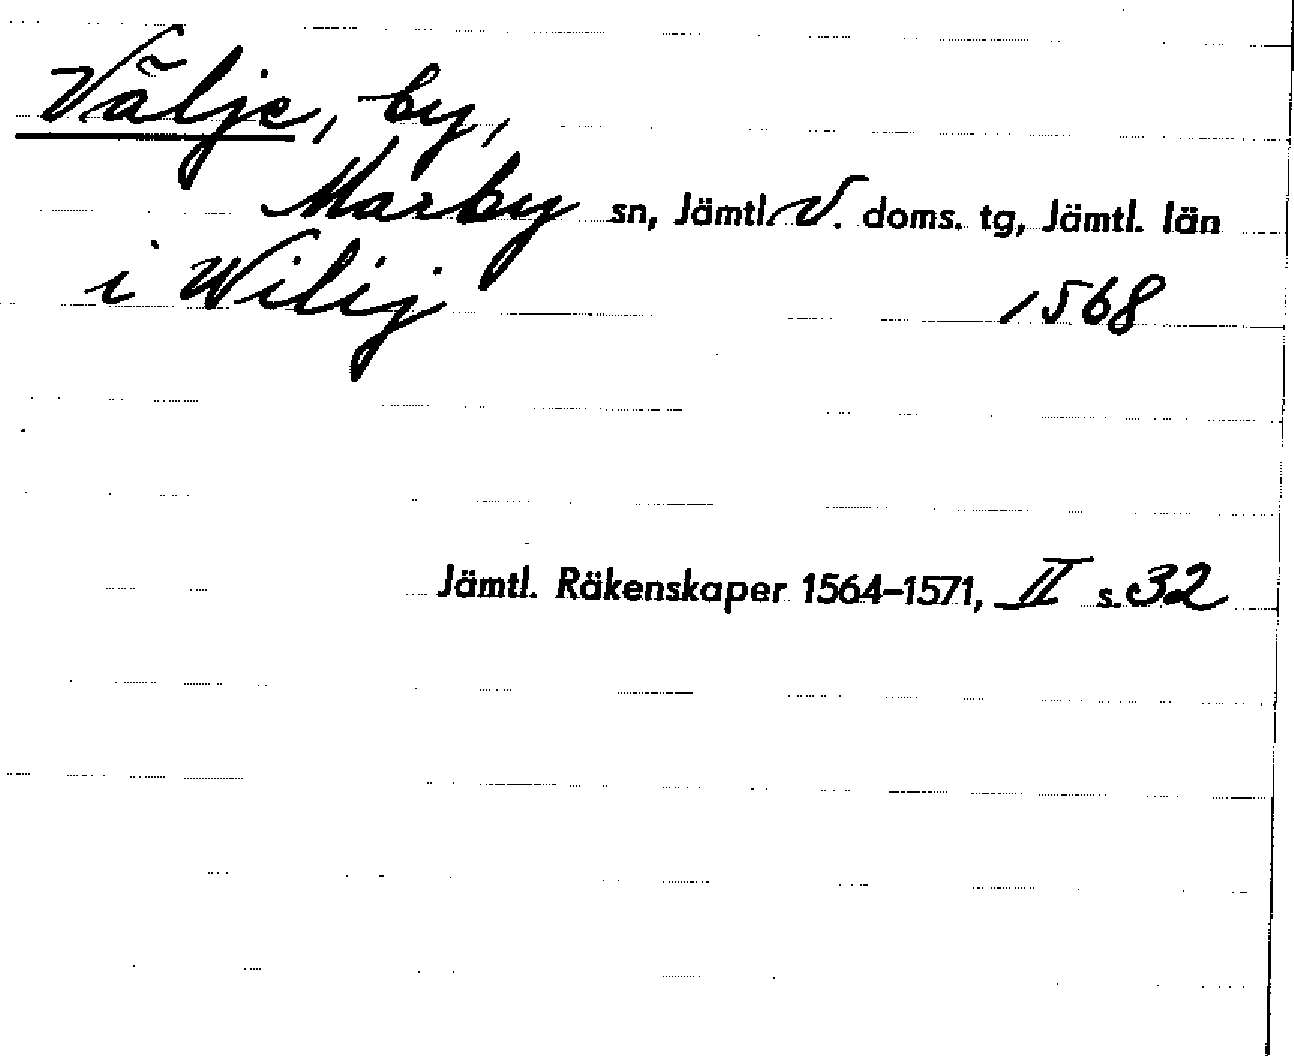 Välje, by,
Marby sn, Jämtl. V. doms. tg, Jämtl. län
i Wilij 1568
Jämtl. Räkenskaper 1564–1571, II s. 32